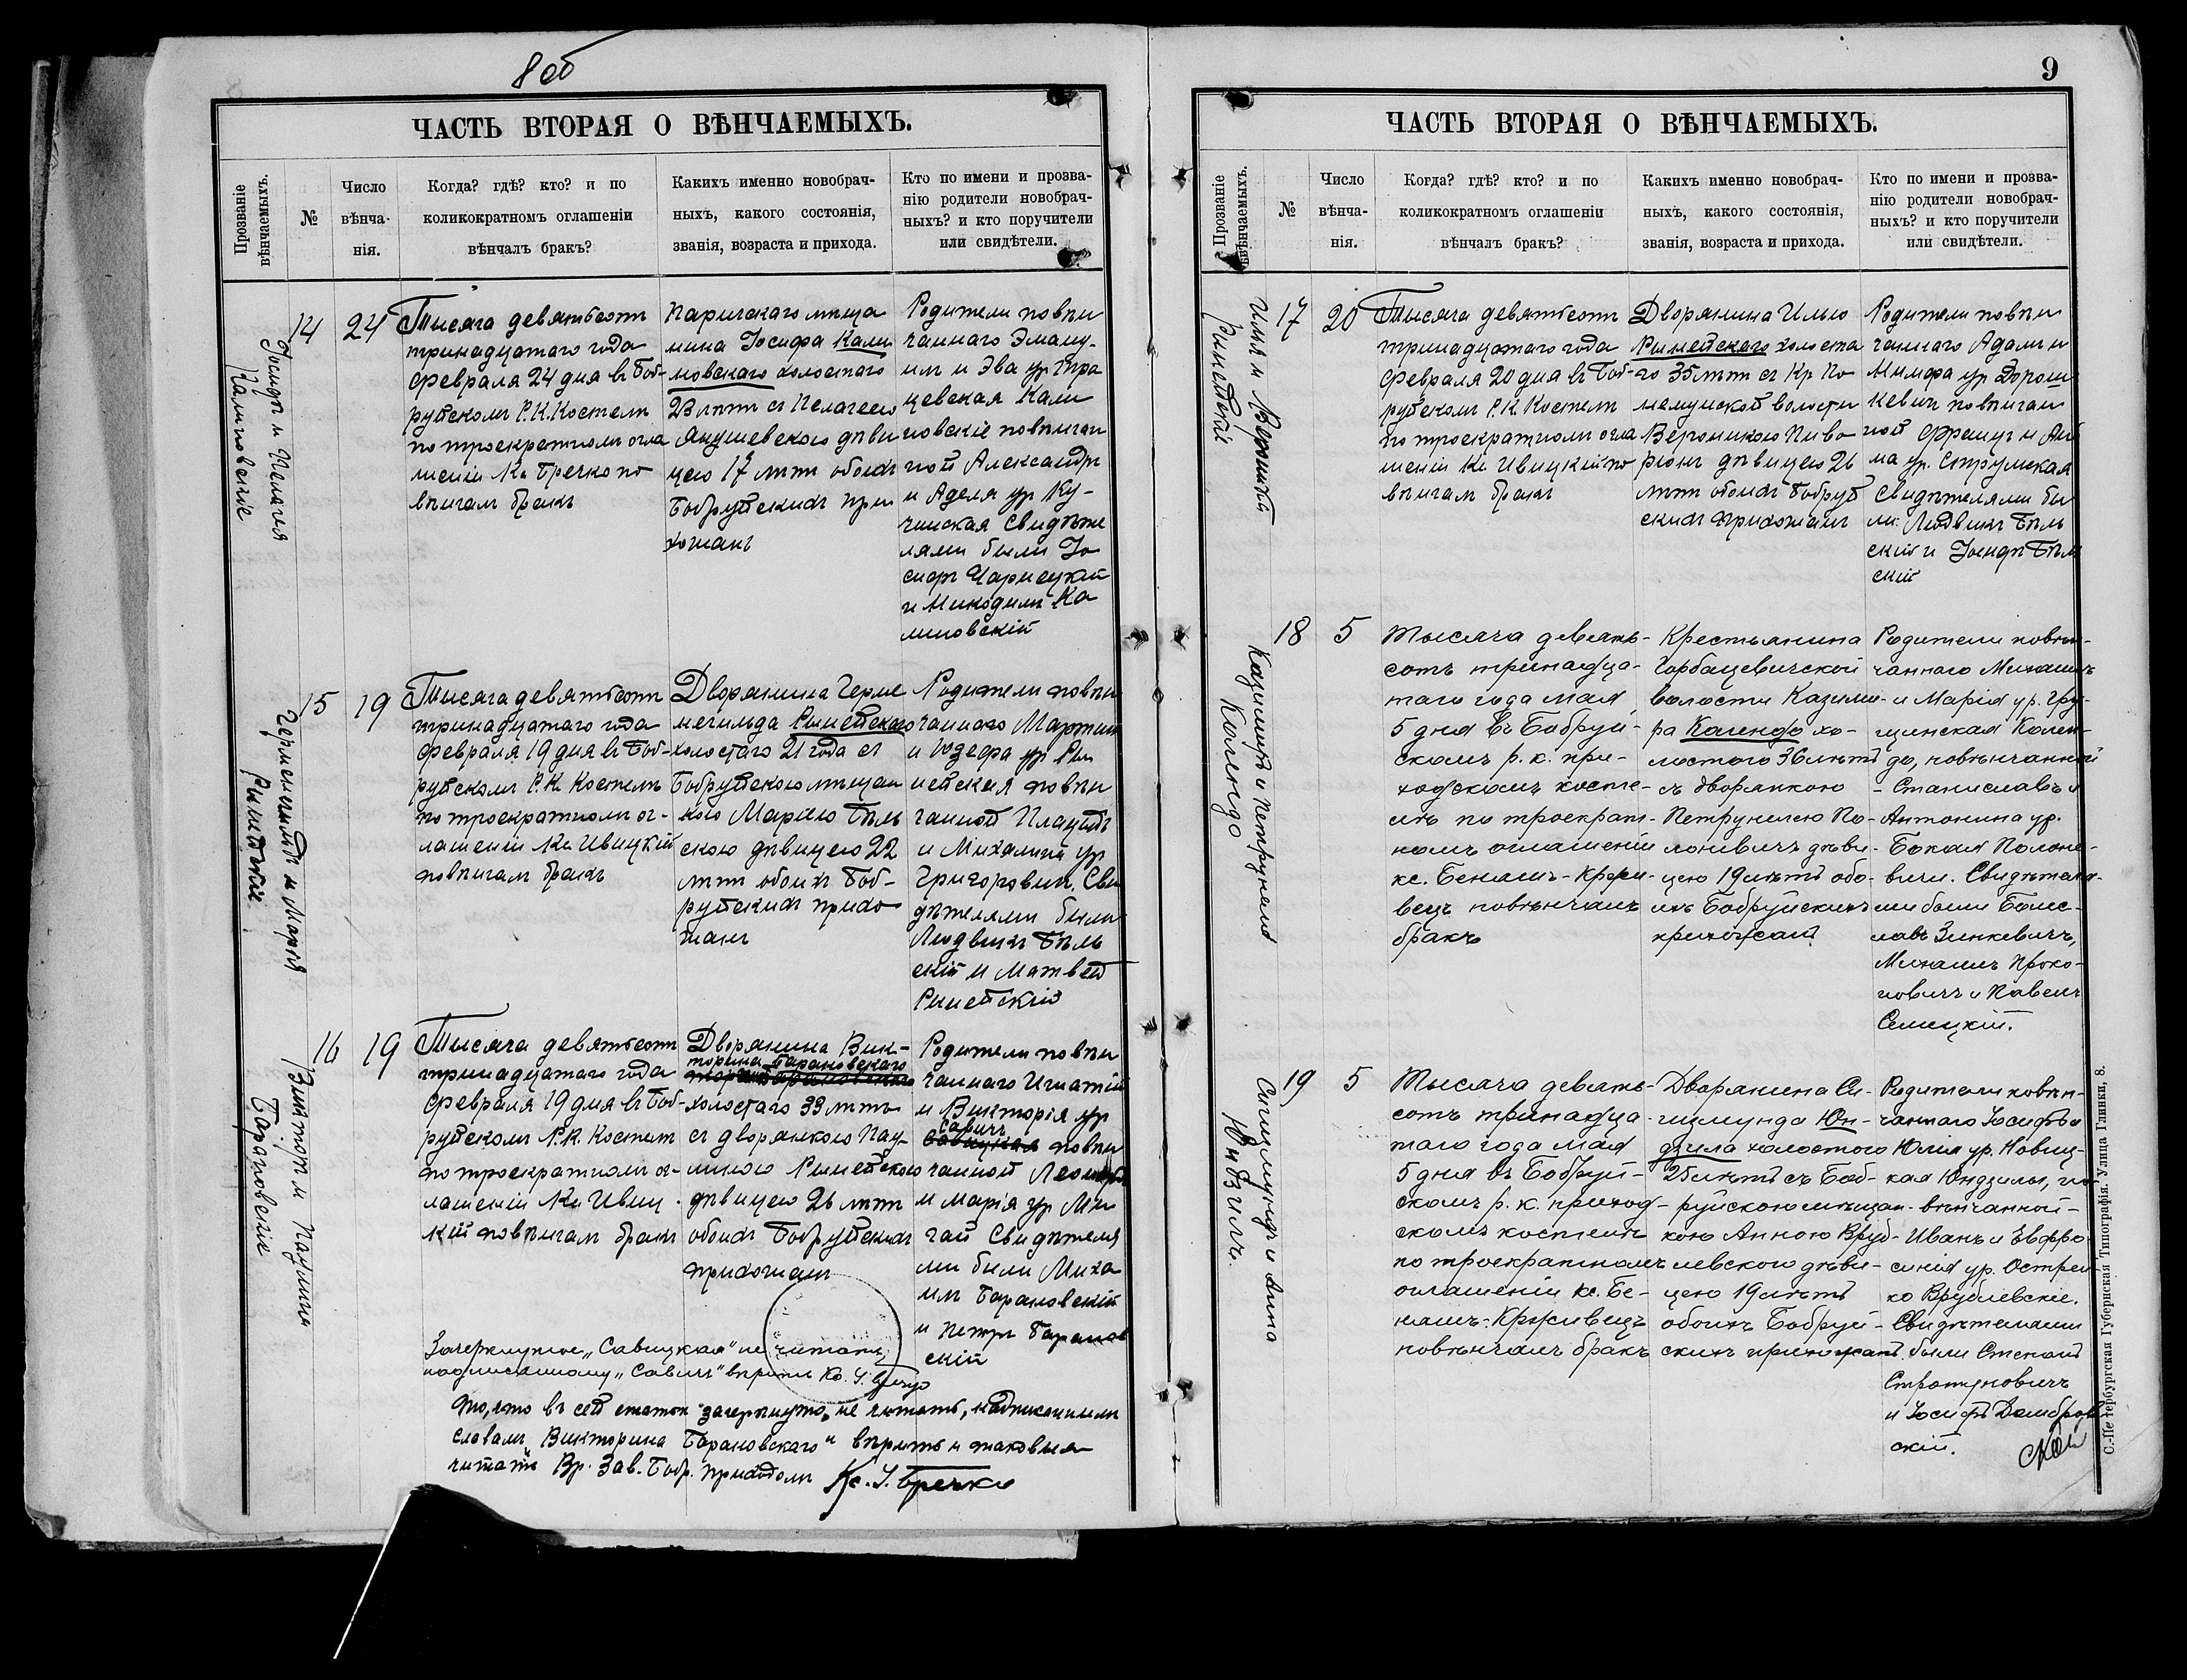 8 об
ЧАСТЬ ВТОРАЯ О ВѢНЧАЕМЫХЪ.
Прозваніе
вѣнчаемыхъ.
№
Число
вѣнча-
нія.
Когда? гдѣ? кто? и по
коликократномъ оглашеніи
вѣнчалъ бракъ?
Какихъ именно новобрач-
ныхъ, какого состоянія,
званія, возраста и прихода.
Кто по имени и прозва-
нію родители новобрач-
ныхъ? и кто поручители
или свидѣтели.
Іосифъ и Пелагея
Калиновскіе
14
24
Тысяча девятьсотъ
тринадцатаго года
Февраля 24 дня въ Боб-
руйскомъ Р.К. Костелѣ
по троекратномъ огла
шеніи Кс. Бречко по
вѣнчалъ бракъ
Паричскаго мѣща
нина Іосифа Кали
новскаго холостаго
23 лѣтъ съ Пелагеею
Янушевскою дѣви
цею 17 лѣтъ обоихъ
Бобруйскихъ при
хожанъ
Родители повѣн
чаннаго Эману-
илъ и Эва ур.
Кали
новскіе повѣнчан
ной Александръ
и Аделя ур. Ку-
чинская Свидѣте
лями были Іо
сифъ Чарнецкій
и Никодимъ Ка
линовскій
Герменегильдъ и Марія
Рынейскіе
15
19
Тысяча девятьсотъ
тринадцатаго года
Февраля 19 дня въ Боб-
руйскомъ Р.К. Костелѣ
по троекратномъ ог-
лашеніи Кс. Ивицкій
повѣнчалъ бракъ
Дворянина Герме
негильда Рынейскаго
холостаго 21 года съ
Бобруйскою мѣщан
кою Маріею Бѣль
скою дѣвицею 22
лѣтъ обоихъ Боб-
руйскихъ прихо
жанъ
Родители повѣн
чаннаго Мартинъ
и Юзефа ур. Ры
нейская повѣн
чанной Плацидъ
и Михалина ур.
Григоровичъ. Сви
дѣтелями были
Людвикъ Бѣль
скій и Матвей
Рынейскій
Викторъ и Паулина
Барановскіе
16
19
Тысяча девятьсотъ
тринадцатаго года
Февраля 19 дня въ Боб-
руйскомъ Р.К. Костелѣ
по троекратномъ ог-
лашеніи Кс. Ивиц-
кій повѣнчалъ бракъ
Дворянина Вик-
торина Барановскаго
холостаго 33 лѣтъ
съ дворянкою Пау-
линою Рынейскою
дѣвицею 26 лѣтъ
обоихъ Бобруйскихъ
прихожанъ
Родители повѣн
чаннаго Игнатій
и Викторія ур.
Савичъ
Савицкая повѣн
чанной Леонардъ
и Марія ур. Ми
гай Свидѣтеля
ми были Миха
илъ Барановскій
и Петръ Баранов
скій
Зачеркнутое „Савицкая" не читать,
надписанному „Савичъ" вѣрить Кс. І. Бречко
То, что въ сей статьѣ зачеркнуто, не читать, надписаннымъ
словамъ „Викторина Барановскаго" вѣрить и таковыя
читать Вр. Зав. Бобр. приходомъ Кс. І. Бречко
9
ЧАСТЬ ВТОРАЯ О ВѢНЧАЕМЫХЪ.
Прозваніе
вѣнчаемыхъ.
№
Число
вѣнча-
нія.
Когда? гдѣ? кто? и по
коликократномъ оглашеніи
вѣнчалъ бракъ?
Какихъ именно новобрач-
ныхъ, какого состоянія,
званія, возраста и прихода.
Кто по имени и прозва-
нію родители новобрач-
ныхъ? и кто поручители
или свидѣтели.
Илья и Вероника
Рынейскіе
17
20
Тысяча девятьсотъ
тринадцатаго года
Февраля 20 дня въ Боб-
руйскомъ Р.К. Костелѣ
по троекратномъ огла
шеніи Кс. Ивицкій по
вѣнчалъ бракъ
Дворянина Илью
Рынейскаго холоста
го 35 лѣтъ съ Кр.
волости
Вероникою Пиво
дѣвицею 26
лѣтъ обоихъ Бобруй
скихъ прихожанъ
Родители повѣн
чаннаго Адамъ и
Нимфа ур. Дорош
кевичъ повѣнчан
ной Францъ и Ан
на ур. Струмская
Свидѣтелями бы
ли: Людвикъ Бѣль
скій и Іосифъ Бѣль
скій
Казиміръ и Петрунеля
Колендо
18
5
Тысяча девять-
сотъ тринадца-
таго года мая
5 дня въ Бобруй-
скомъ р. к. при-
ходскомъ косте-
лѣ по троекрат-
номъ оглашеніи
кс. Беньямъ-Кржи-
вецъ повѣнчалъ
бракъ
Крестьянина
Горбацевичской
волости Казими-
ра Колендо хо-
лостого 36 лѣтъ
съ дворянкою
Петрунелею По-
лоневичъ дѣви-
цею 19 лѣтъ обо-
ихъ Бобруйскихъ
прихожанъ.
Родители повѣн-
чаннаго Михаилъ
и Марія ур. Гру-
щинская Колен-
до, повѣнчанной
- Станиславъ и
Антонина ур.
Бокая Полоне-
вичи. Свидѣтеля-
ми были Болес-
лавъ Зинкевичъ,
Михаилъ Проко-
повичъ и Павелъ
Селицкій.
Сигизмундъ и Анна
Юндзилъ.
19
5
Тысяча девять-
сотъ тринадца-
таго года мая
5 дня въ Бобруй-
скомъ р. к. приход-
скомъ костелѣ
по троекратномъ
оглашеніи кс. Бе-
ньямъ-Кржывецъ
повѣнчалъ бракъ
Дворянина Си-
гизмунда Юн-
дзила холостого
25 лѣтъ съ Боб-
руйскою мѣщан-
кою Анною Вруб-
левскою дѣви-
цею 19 лѣтъ
обоихъ Бобруй-
скихъ прихожанъ.
Родители повѣн-
чаннаго Іосифъ и
Юлія ур. Новиц-
кая Юндзилы, по-
вѣнчанной -
Иванъ и Евфро-
синія ур. Острей-
ко Врублевскіе.
Свидѣтелями
были Степанъ
Стротуновичъ
и Іосифъ Домбров-
скій.
С.-Петербургская Губернская Типографія. Улица Глинки, 8.